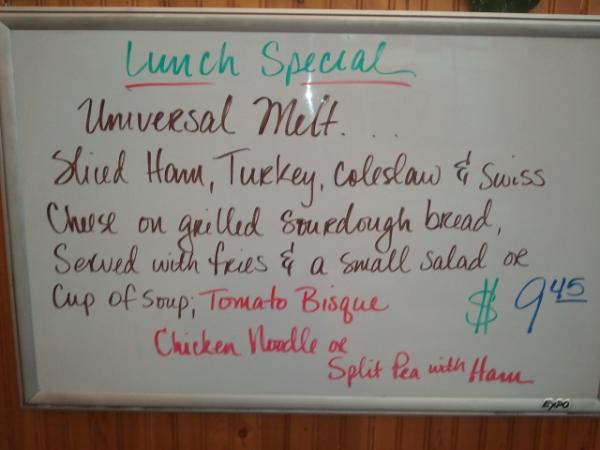 Lunch Special
Universal Melt...
Sliced Ham, Turkey, Coleslaw & Swiss
Cheese on grilled Sourdough bread,
Served with fries & a small salad or
Cup of Soup; Tomato Bisque
$ 9 45
Chicken Noodle or
Split Pea with Ham
EXPO